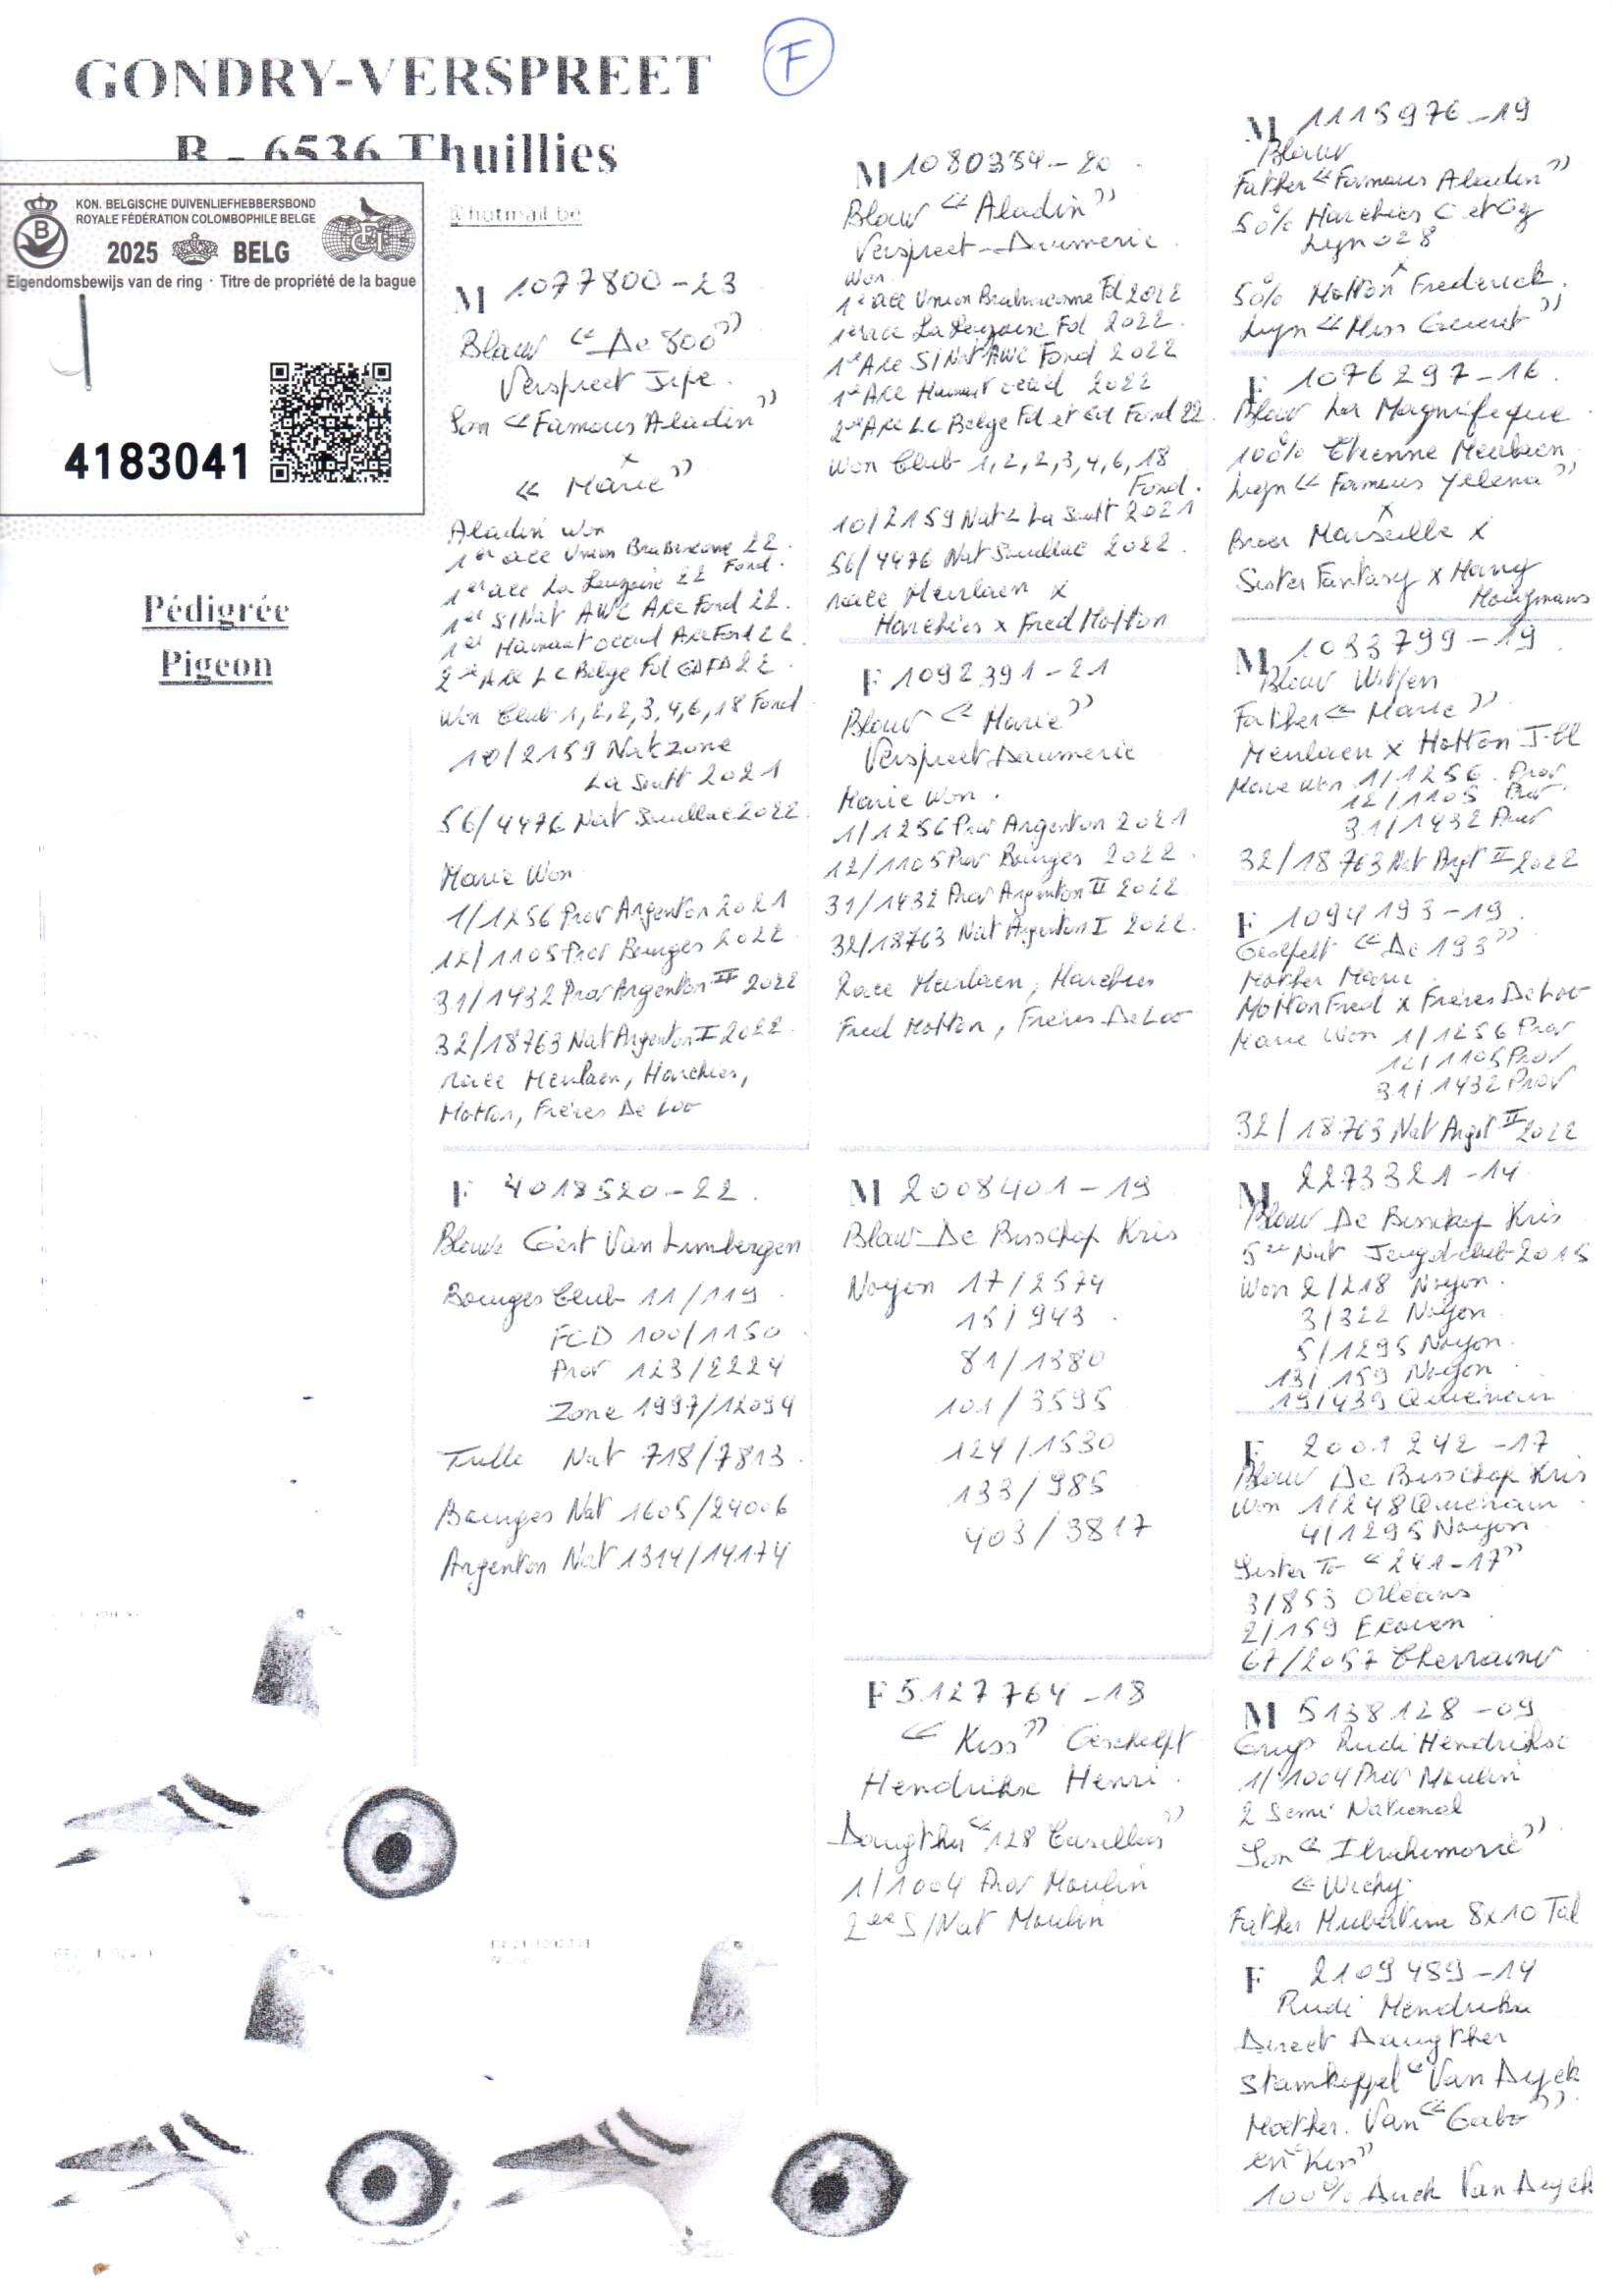 GONDRY-VERSPREET
F
B - 6536 Thuillies
@hotmail.be
KON. BELGISCHE DUIVENLIEFHEBBERSBOND
ROYALE FÉDÉRATION COLOMBOPHILE BELGE
2025 BELG
Eigendomsbewijs van de ring · Titre de propriété de la bague
4183041
Pédigrée
Pigeon
M 1077800-23
Blauw "De 800"
Verspreet Jepe.
Son "Famous Aladin"
x
"Marie"
Aladin won
1er ace Union Brabanconne 22.
1er ace La Louzoise 22 Fond.
1er S/Nat AWC Ace Fond 22.
1er Hainaut occid Ace Fond 22
2de Ace LC Belge Fd GdFd 22.
Won Club 1,2,2,3,4,6,18 Fond
10/2159 Nat zone
La Soutt 2021
56/4476 Nat Souillac 2022
Marie Won
1/1256 Prov Argenton 2021
12/1105 Prov Bourges 2022
31/1432 Prov Argenton II 2022
32/18763 Nat Argenton I 2022
race Meulaen, Harchies,
Motton, Frères De Loo
F 4018520-22.
Blauw Gert Van Limbergen
Bourges Club 11/119
FCD 100/1150
Prov 123/2224
Zone 1997/12094
Tulle Nat 718/7813
Bourges Nat 1605/24006
Argenton Nat 1314/14174
M 1080334-20
Blauw "Aladin"
Verspreet-Daumerie
Won
1e ace Union Brabanconne Fd 2022
1er ace La Louzoise Fd 2022
1e Ace S/Nat AWC Fond 2022
1e Ace Hainaut occid 2022
2de Ace LC Belge Fd et Gd Fond 22.
Won Club 1,2,2,3,4,6,18
Fond.
10/2159 Nat z La Soutt 2021
56/4476 Nat Souillac 2022.
race Meulaen x
Harchies x Fred Motton
F 1092391-21
Blauw "Marie"
Verspreet Daumerie
Marie Won.
1/1256 Prov Argenton 2021
12/1105 Prov Bourges 2022
31/1432 Prov Argenton II 2022
32/18763 Nat Argenton I 2022.
Race Meulaen, Harchies
Fred Motton, Frères De Loo
M 2008401-19
Blauw De Bisschop Kris
Noyon 17/2574
15/943
81/1380
101/3595
124/1530
133/985
403/3817
F 5127764-18
"Kiss" Geschelpt
Hendrikx Henri.
Daugther "128 Casillas"
1/1004 Prov Moulin
2de S/Nat Moulin
M 1115976-19
Blauw
Father "Famous Aladin"
50% Harchies C et Gy
Lyn 028
x
50% Motton Frederick.
Lyn "Miss Cieuret"
F 1076297-16.
Blauw La Magnifique
100% Etienne Meulaen
Lyn "Famous Yelena"
x
Broer Marseille x
Sister Fantasy x Hany
Houymans
M 1033799-19
Blauw Witpen
Father "Marie"
Meulaen x Motton J-Cl
Marie won 1/1256. Prov
12/1105 Prov
31/1432 Prov
32/18763 Nat Argt II 2022
F 1094193-19
Geschelpt "De 193"
Mother Marie
Motton Fred x Frères De Loo
Marie Won 1/1256 Prov
12/1105 Prov
31/1432 Prov
32/18763 Nat Argt II 2022
M 2273321-14
Blauw De Bisschop Kris
5de Nat Jeugdclub 2015
Won 2/218 Noyon.
3/322 Noyon.
5/1295 Noyon.
13/159 Noyon
19/439 Quievrain
F 2001242-17
Blauw De Bisschop Kris
Won 1/248 Quievrain
4/1295 Noyon
Sister To "241-17"
3/853 Orleans
2/159 Ecouen
67/2057 Chevrainv
M 5138128-09
Grup Rudi Hendrikx
1/1004 Prov Moulin
2 Semi National
Son "Ibrahimovic"
"Wichy
Father Hubertine 8x10 Tal
F 2109489-14
Rudi Hendrikx
Direct Daugther
Stamkoppel "Van Dyck
Mother. Van "Gabo"
en "Kiss"
100% Dirck Van Dyck